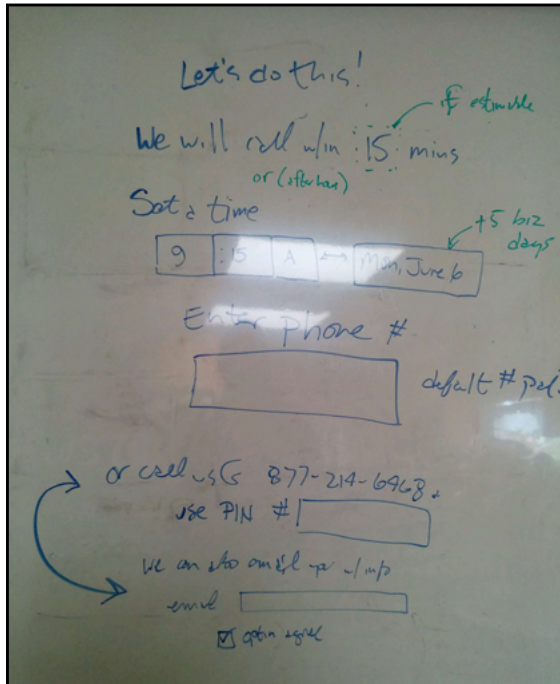 Let's do this!
if estimable
We will call w/in 15 mins
or (after hours)
Set a time
+5 biz
days
9 :15 A ↔ Mon, June 6
Enter phone #
default #
or call us 877-214-6468.
use PIN #
we can also email w/ info
email
optin agree